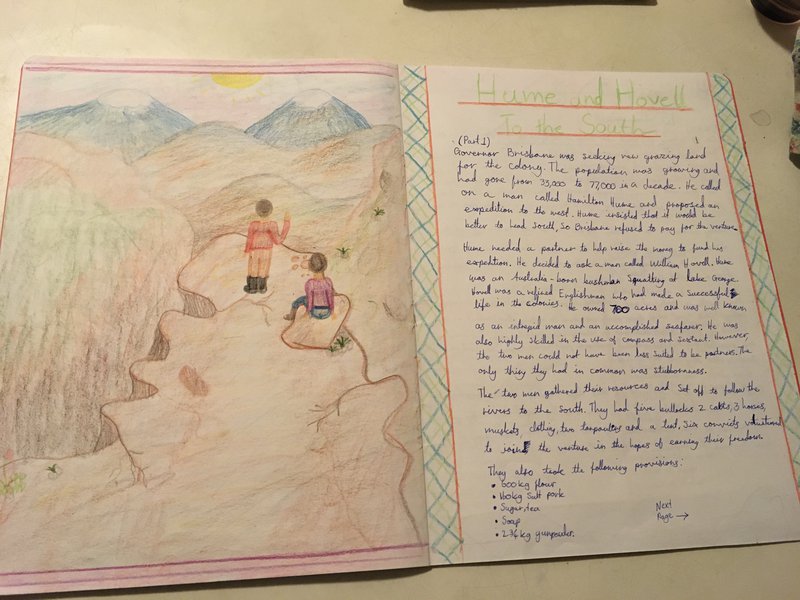 Hume and Hovell
To the South
(Part 1)
Governor Brisbane was seeking new grazing land
for the colony. The population was growing and
had gone from 33,000 to 77,000 in a decade. He called
on a man called Hamilton Hume and proposed an
expedition to the west. Hume insisted that it would be
better to head South, so Brisbane refused to pay for the venture.
Hume needed a partner to help raise the money to fund his
expedition. He decided to ask a man called William Hovell. Hume
was an Australia-born bushman squatting at Lake George.
Hovell was a refined Englishman who had made a successful
life in the colonies. He owned 700 acres and was well known
as an intrepid man and an accomplished seafarer. He was
also highly skilled in the use of compass and sextant. However,
the two men could not have been less suited to be partners. The
only thing they had in common was stubbornness.
The two men gathered their resources and set off to follow the
rivers to the south. They had five bullocks 2 carts, 3 horses,
muskets clothing, two tarpaulins and a tent. Six convicts
to join the venture in the hopes of earning their freedom.
They also took the following provisions:
• 600kg flour
• 160kg salt pork
• Sugar, tea
• Soap
• kg gunpowder.
Next
Page →